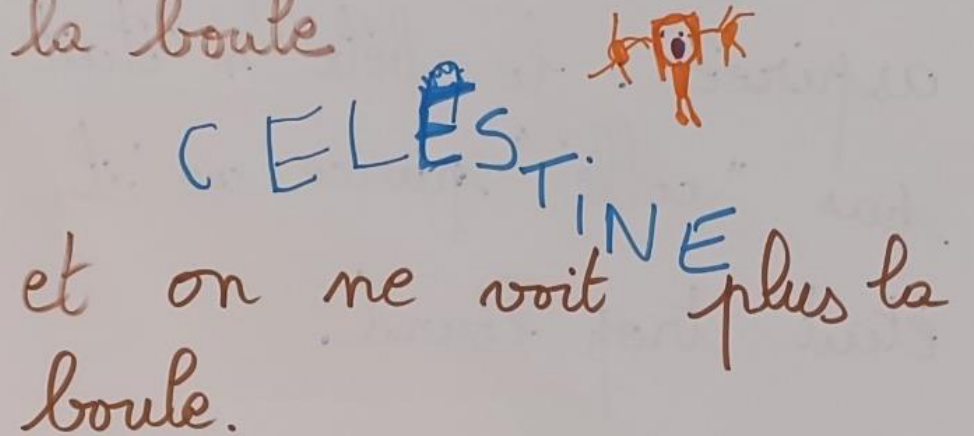 la boule
CELESTiNE
et on ne voit plus la
boule.